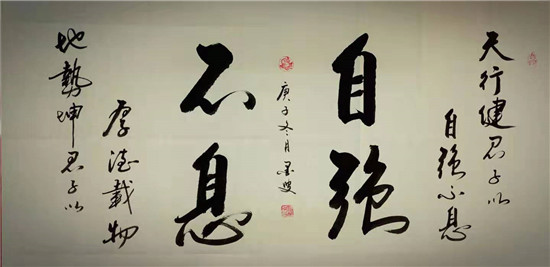 天行健君子以
自強不息
自強
不息
庚子冬月
地勢坤君子以
厚德載物